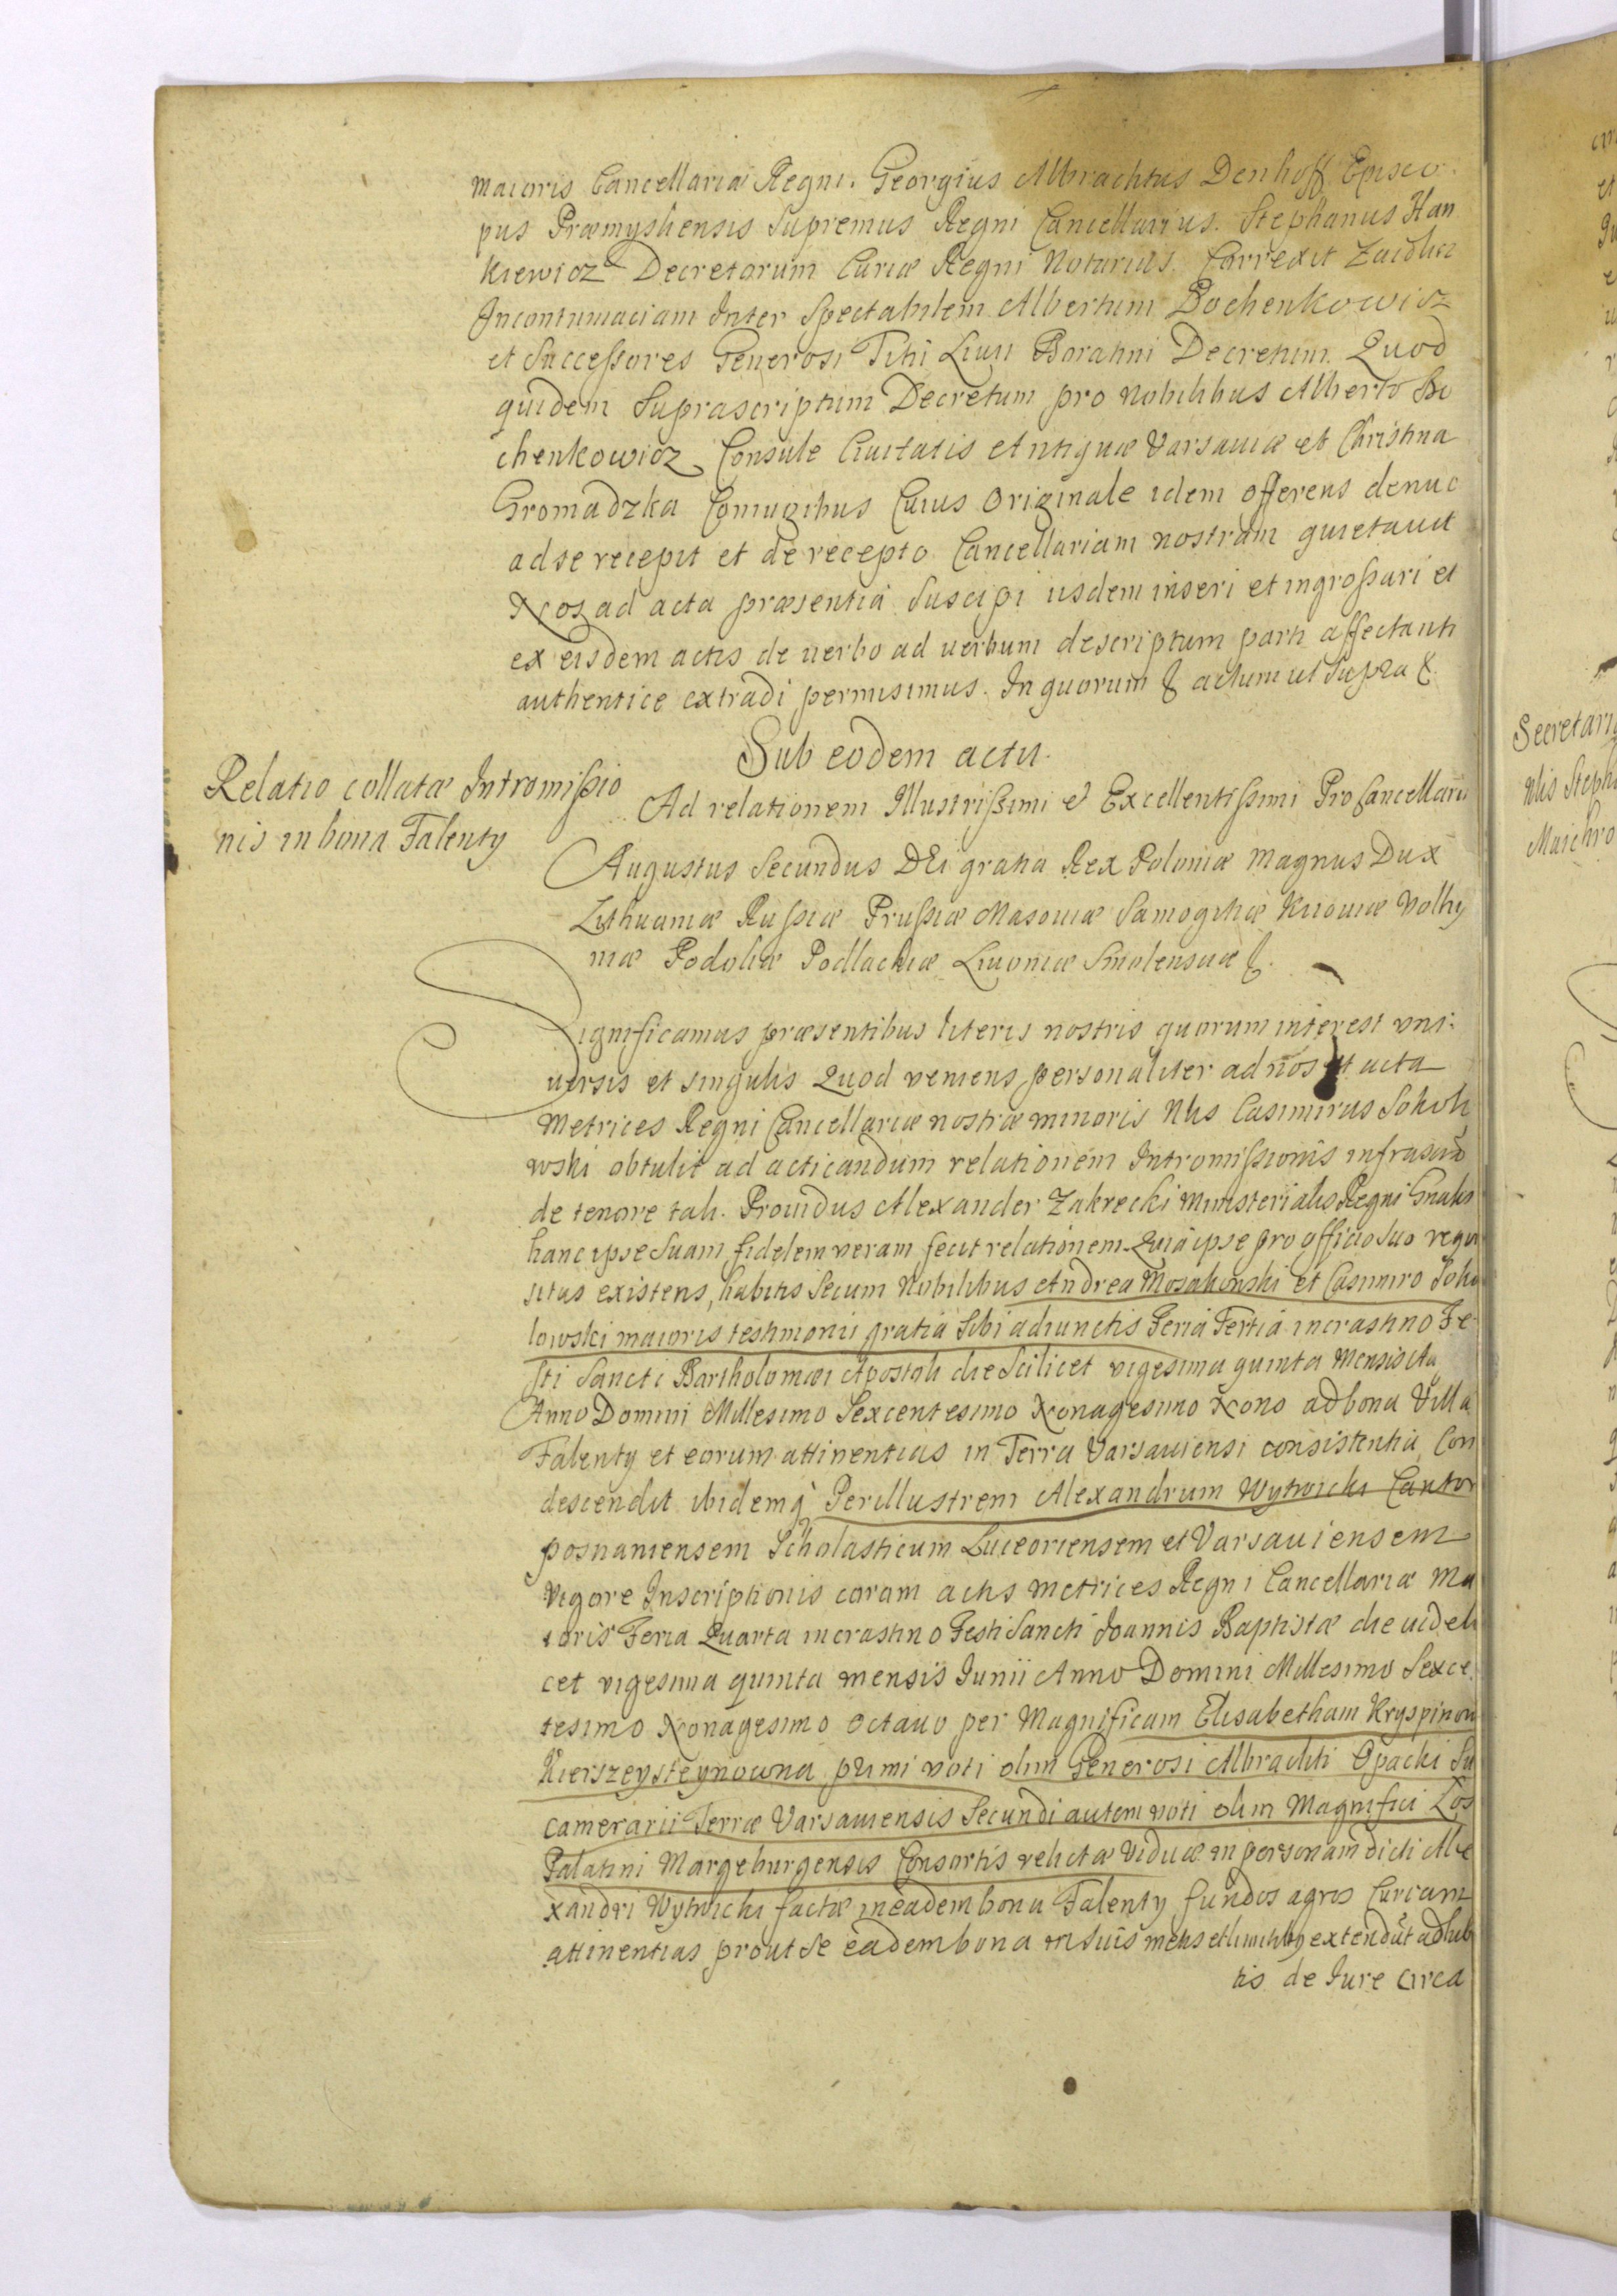 maioris Cancellariæ Regni. Georgius Albrachtus Denhoff Episco-
pus Præmysliensis Supremus Regni Cancellarius. Stephanus Han
kiewicz Decretorum Curiæ Regni Notarius. Correxit
In contumaciam Inter Spectabilem Albertum Bochenkowicz
et Successores Generosi Titi Liuii Boratini Decretum. Quod
quidem Suprascriptum Decretum pro Nobilibus Alberto Bo
chenkowicz Consule Ciuitatis Antiquæ Varsauiæ et Christina
Gromadzka Coniugibus Cuius Originale idem offerens denuo
ad se recepit et de recepto Cancellariam nostram quietauit
Nos ad acta præsentia Suscipi iisdem inseri et ingrossari et
ex eisdem actis de uerbo ad uerbum descriptum parti affectanti
authentice extradi permisimus. In quorum & actum ut Supra &.
Sub eodem actu.
Relatio collatæ Intromissio
nis in bona Falenty
Ad relationem Illustrissimi et Excellentissimi ProCancellarii
Augustus Secundus DEi gratia Rex Poloniæ Magnus Dux
Lithuaniæ Russiæ Prussiæ Masouiæ Samogitiæ Kiiouiæ Volhy
niæ Podoliæ Podlachiæ Liuoniæ Smolensciæ &.
Significamus præsentibus literis nostris quorum interest vni-
uersis et singulis Quod veniens personaliter ad nos et acta
Metrices Regni Cancellariæ nostræ minoris Nlis Casimirus Sokoli
wski obtulit ad acticandum relationem Intromissionis infrascrō
de tenore tali. Prouidus Alexander Zakrecki Ministerialis Regni Gnalis
hanc ipse Suam fidelem veram fecit relationem. Quia ipse pro officio Suo requi
situs existens, habitis Secum Nobilibus Andrea Mosakowski et Casimiro Soko
lowski maioris testimonii gratia Sibi adiunctis Feria Tertia in crastino Fe-
sti Sancti Bartholomæi Apostoli die Scilicet vigesima quinta Mensis Au
Anno Domini Millesimo Sexcentesimo Nonagesimo Nono ad bona Villa
Falenty et eorum attinentias in Terra Varsauiensi consistentia Con
descendit ibidemq Perillustrem Alexandrum Wytwicki Cantor
posnaniensem Scholasticum Luceoriensem et Varsauiensem
vigore Inscriptionis coram actis Metrices Regni Cancellariæ Ma
ioris Feria Quarta in crastino Festi Sancti Joannis Baptistæ die uideli
cet vigesima quinta mensis Junii Anno Domini Millesimo Sexce
tesimo Nonagesimo Octauo per Magnificam Elisabetham Kryspinow
Kierszeysteynowna primi voti olim Generosi Albrachti Opacki Su
camerarii Terræ Varsauiensis Secundi autem voti olim Magnifici Los
Palatini Margeburgensis Consortis relictæ Viduæ in personam dicti Ale
xandri Wytwicki factæ in eadem bona Falenty fundos agros Curiam
attinentias prout Se eadem bona in Suis metis et limitibq extendūt adhib
tis de Jure circa
Secretari
Nlis Steph
Maichro